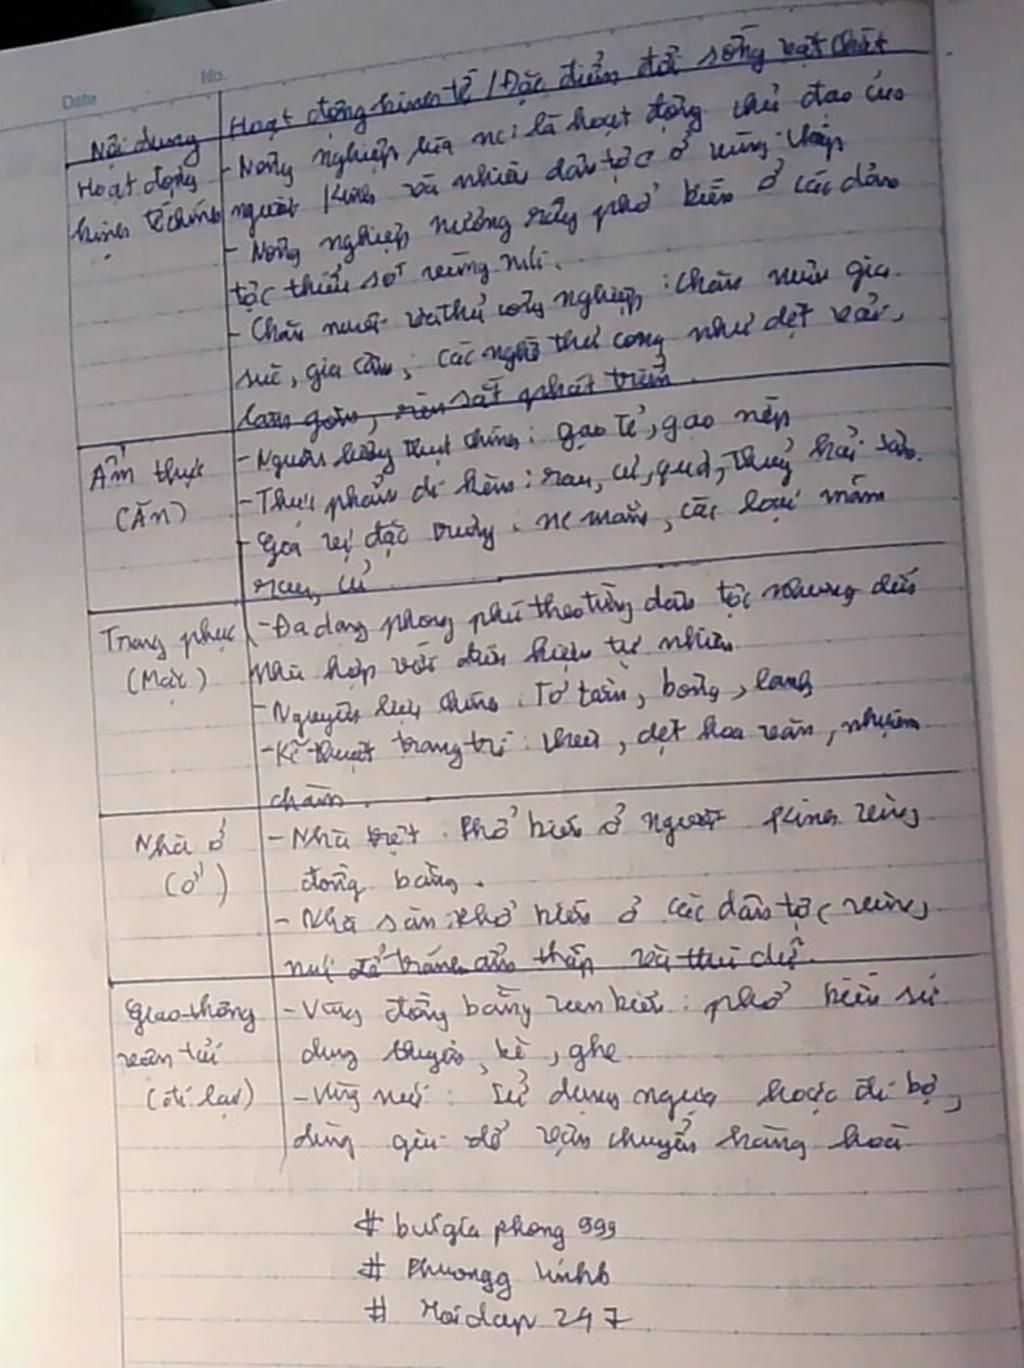 Date No.
Nội dung Hoạt động kinh tế / Đặc điểm đời sống vật chất
Hoạt động kinh tế chính
- Nông nghiệp lúa nc: là hoạt động chủ đạo của
người Kinh và nhiều dân tộc ở vùng thấp
- Nông nghiệp nương rẫy phổ biến ở các dân
tộc thiểu số vùng núi.
- Chăn nuôi và thủ công nghiệp: chăn nuôi gia
súc, gia cầm; các nghề thủ công như dệt vải,
làm gốm, rèn sắt phát triển.
Ẩm thực
(Ăn)
- Nguồn lương thực chính: gạo tẻ, gạo nếp
- Thực phẩm đi kèm: rau, củ, quả, thuỷ hải sản.
- Gia vị đặc trưng: nc mắm, các loại mắm
rau, củ.
Trang phục
(Mặc)
- Đa dạng phong phú theo từng dân tộc nhưng đều
phù hợp với điều kiện tự nhiên.
- Nguyên liệu chính: Tơ tằm, bông, lanh
- Kĩ thuật trang trí: thêu, dệt hoa văn, nhuộm
chàm.
Nhà ở
(ở)
- Nhà trệt: Phổ biến ở người Kinh vùng
đồng bằng.
- Nhà sàn: Phổ biến ở các dân tộc vùng
núi để tránh ẩm thấp và thú dữ.
Giao thông
vận tải
(đi lại)
- Vùng đồng bằng ven biển: phổ biến sử
dụng thuyền, bè, ghe
- Vùng núi: Sử dụng ngựa hoặc đi bộ,
dùng gùi để vận chuyển hàng hoá
# buigia phong 999
# Phuongg linhb
# Hoidap 247